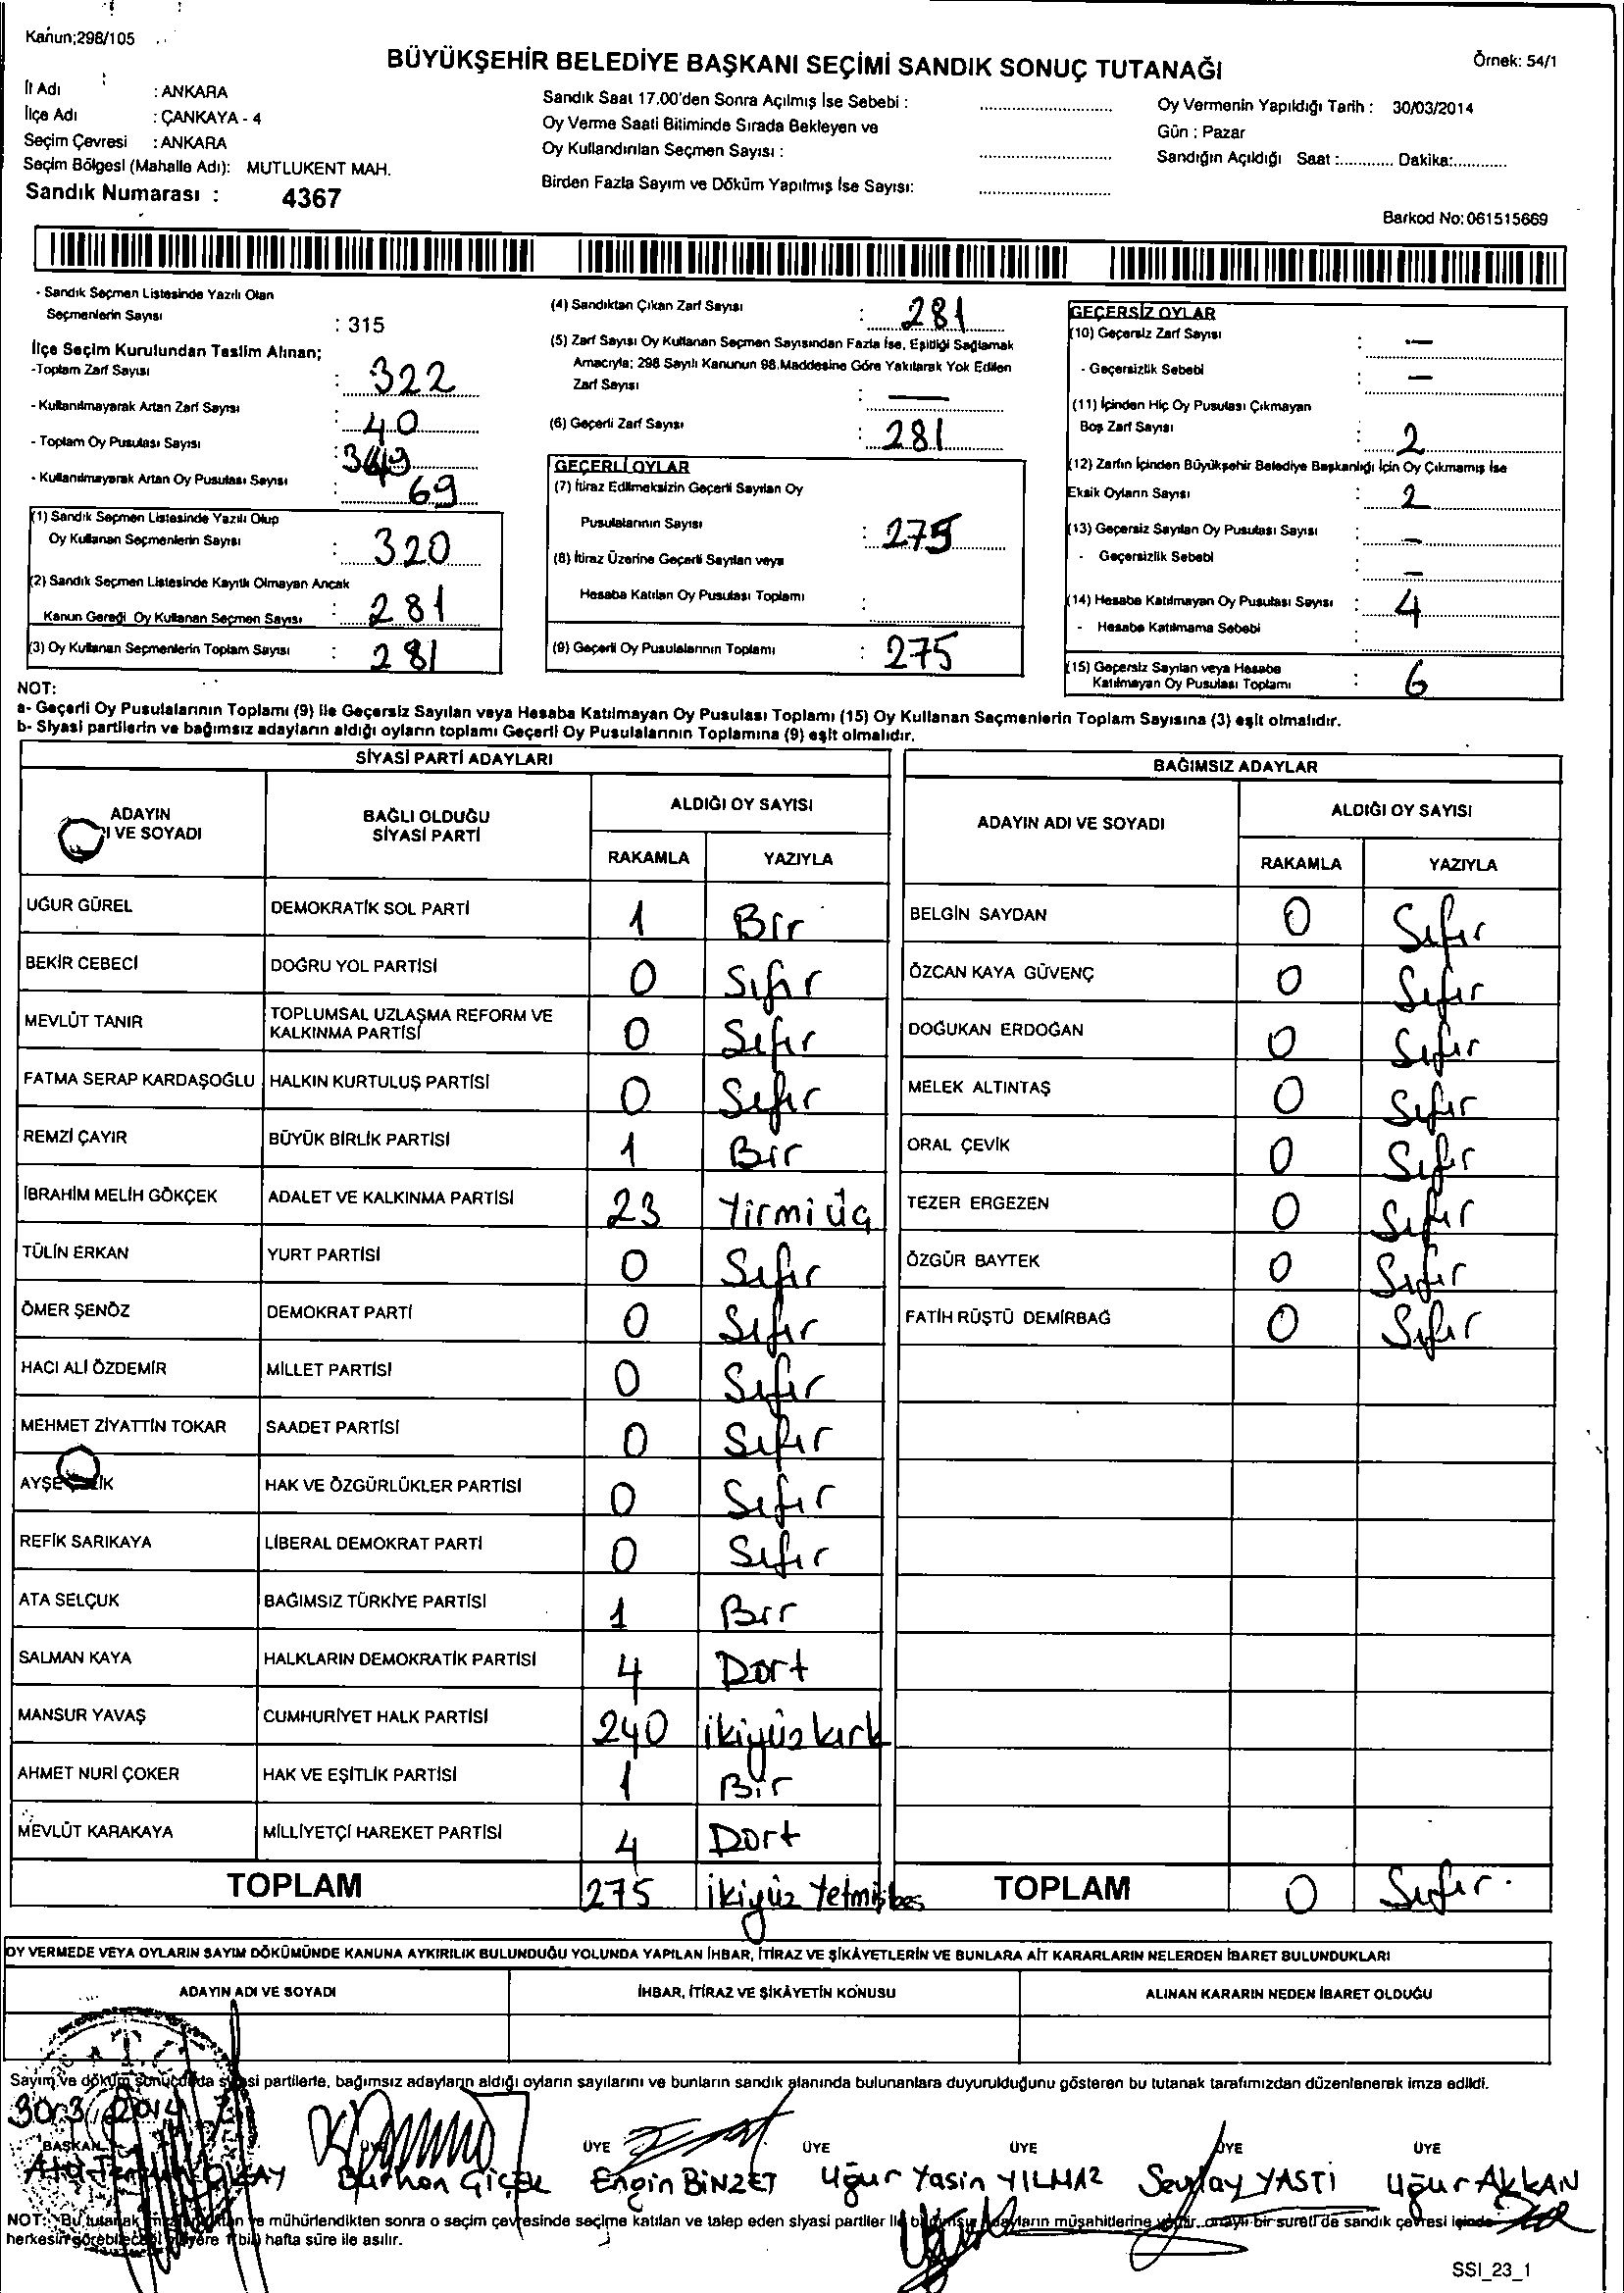 Kanun;298/105
BÜYÜKŞEHİR BELEDİYE BAŞKANI SEÇİMİ SANDIK SONUÇ TUTANAĞI
Örnek: 54/1
İl Adı : ANKARA
İlçe Adı : ÇANKAYA - 4
Seçim Çevresi : ANKARA
Seçim Bölgesi (Mahalle Adı): MUTLUKENT MAH.
Sandık Numarası : 4367
Sandık Saat 17.00'den Sonra Açılmış İse Sebebi :
Oy Verme Saati Bitiminde Sırada Bekleyen ve
Oy Kullandırılan Seçmen Sayısı :
Birden Fazla Sayım ve Döküm Yapılmış İse Sayısı:
Oy Vermenin Yapıldığı Tarih : 30/03/2014
Gün : Pazar
Sandığın Açıldığı Saat :............ Dakika:............
Barkod No: 061515669
- Sandık Seçmen Listesinde Yazılı Olan
Seçmenlerin Sayısı : 315
İlçe Seçim Kurulundan Teslim Alınan;
-Toplam Zarf Sayısı : 322
- Kullanılmayarak Artan Zarf Sayısı : 40
- Toplam Oy Pusulası Sayısı :
- Kullanılmayarak Artan Oy Pusulası Sayısı : 69
(1) Sandık Seçmen Listesinde Yazılı Olup
Oy Kullanan Seçmenlerin Sayısı : 320
(2) Sandık Seçmen Listesinde Kayıtlı Olmayan Ancak
Kanun Gereği Oy Kullanan Seçmen Sayısı : 281
(3) Oy Kullanan Seçmenlerin Toplam Sayısı : 281
(4) Sandıktan Çıkan Zarf Sayısı : 281
(5) Zarf Sayısı Oy Kullanan Seçmen Sayısından Fazla İse, Eşitliği Sağlamak
Amacıyla; 298 Sayılı Kanunun 98.Maddesine Göre Yakılarak Yok Edilen
Zarf Sayısı : —
(6) Geçerli Zarf Sayısı : 281
GEÇERLİ OYLAR
(7) İtiraz Edilmeksizin Geçerli Sayılan Oy
Pusulalarının Sayısı : 275
(8) İtiraz Üzerine Geçerli Sayılan veya
Hesaba Katılan Oy Pusulası Toplamı :
(9) Geçerli Oy Pusulalarının Toplamı : 275
GEÇERSİZ OYLAR
(10) Geçersiz Zarf Sayısı : —
- Geçersizlik Sebebi : —
(11) İçinden Hiç Oy Pusulası Çıkmayan
Boş Zarf Sayısı : 2
(12) Zarfın İçinden Büyükşehir Belediye Başkanlığı İçin Oy Çıkmamış İse
Eksik Oyların Sayısı : 2
(13) Geçersiz Sayılan Oy Pusulası Sayısı : —
- Geçersizlik Sebebi : —
(14) Hesaba Katılmayan Oy Pusulası Sayısı : 4
- Hesaba Katılmama Sebebi :
(15) Geçersiz Sayılan veya Hesaba
Katılmayan Oy Pusulası Toplamı : 6
NOT:
a- Geçerli Oy Pusulalarının Toplamı (9) ile Geçersiz Sayılan veya Hesaba Katılmayan Oy Pusulası Toplamı (15) Oy Kullanan Seçmenlerin Toplam Sayısına (3) eşit olmalıdır.
b- Siyasi partilerin ve bağımsız adayların aldığı oyların toplamı Geçerli Oy Pusulalarının Toplamına (9) eşit olmalıdır.
SİYASİ PARTİ ADAYLARI
ADAYIN
I VE SOYADI
BAĞLI OLDUĞU
SİYASİ PARTİ
ALDIĞI OY SAYISI
RAKAMLA YAZIYLA
UĞUR GÜREL DEMOKRATİK SOL PARTİ 1 Bir
BEKİR CEBECİ DOĞRU YOL PARTİSİ 0 Sıfır
MEVLÜT TANIR TOPLUMSAL UZLAŞMA REFORM VE
KALKINMA PARTİSİ 0 Sıfır
FATMA SERAP KARDAŞOĞLU HALKIN KURTULUŞ PARTİSİ 0 Sıfır
REMZİ ÇAYIR BÜYÜK BİRLİK PARTİSİ 1 Bir
İBRAHİM MELİH GÖKÇEK ADALET VE KALKINMA PARTİSİ 23 Yirmi üç
TÜLİN ERKAN YURT PARTİSİ 0 Sıfır
ÖMER ŞENÖZ DEMOKRAT PARTİ 0 Sıfır
HACI ALİ ÖZDEMİR MİLLET PARTİSİ 0 Sıfır
MEHMET ZİYATTİN TOKAR SAADET PARTİSİ 0 Sıfır
AYŞE HAK VE ÖZGÜRLÜKLER PARTİSİ 0 Sıfır
REFİK SARIKAYA LİBERAL DEMOKRAT PARTİ 0 Sıfır
ATA SELÇUK BAĞIMSIZ TÜRKİYE PARTİSİ 1 Bir
SALMAN KAYA HALKLARIN DEMOKRATİK PARTİSİ 4 Dort
MANSUR YAVAŞ CUMHURİYET HALK PARTİSİ 240 ikiyüz kırk
AHMET NURİ ÇOKER HAK VE EŞİTLİK PARTİSİ 1 Bir
MEVLÜT KARAKAYA MİLLİYETÇİ HAREKET PARTİSİ 4 Dort
TOPLAM 275 ikiyüz Yetmişbes
BAĞIMSIZ ADAYLAR
ADAYIN ADI VE SOYADI
ALDIĞI OY SAYISI
RAKAMLA YAZIYLA
BELGİN SAYDAN 0 Sıfır
ÖZCAN KAYA GÜVENÇ 0 Sıfır
DOĞUKAN ERDOĞAN 0 Sıfır
MELEK ALTINTAŞ 0 Sıfır
ORAL ÇEVİK 0 Sıfır
TEZER ERGEZEN 0 Sıfır
ÖZGÜR BAYTEK 0 Sıfır
FATİH RÜŞTÜ DEMİRBAĞ 0 Sıfır
TOPLAM 0 Sıfır.
OY VERMEDE VEYA OYLARIN SAYIM DÖKÜMÜNDE KANUNA AYKIRILIK BULUNDUĞU YOLUNDA YAPILAN İHBAR, İTİRAZ VE ŞİKÂYETLERİN VE BUNLARA AİT KARARLARIN NELERDEN İBARET BULUNDUKLARI
ADAYIN ADI VE SOYADI İHBAR, İTİRAZ VE ŞİKÂYETİN KONUSU ALINAN KARARIN NEDEN İBARET OLDUĞU
Sayım ve döküm sonucunda siyasi partilerle, bağımsız adayların aldığı oyların sayılarını ve bunların sandık alanında bulunanlara duyurulduğunu gösteren bu tutanak tarafımızdan düzenlenerek imza edildi.
30.3.2014
BAŞKAN ÜYE ÜYE ÜYE ÜYE ÜYE ÜYE
Burhan Engin BİNZET Uğur Yasin YILMAZ YASTI Uğur AKKAN
NOT: Bu tutanak ve mühürlendikten sonra o seçim çevresinde seçime katılan ve talep eden siyasi partiler ile müşahitlerine onaylı bir sureti de sandık çevresi içinde
herkesin hafta süre ile asılır.
SSI_23_1